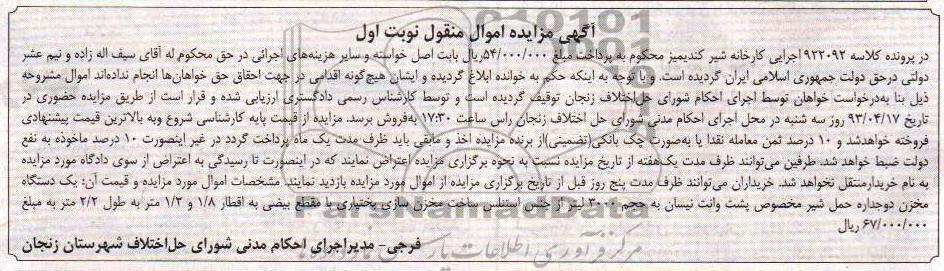 آگهی مزایده اموال منقول نوبت اول
در پرونده کلاسه ۹۲۲۰۹۲ اجرایی کارخانه شیر کندیمیز محکوم به پرداخت مبلغ ۵۴/۰۰۰/۰۰۰ریال بابت اصل خواسته و سایر هزینه‌های اجرائی در حق محکوم له آقای سیف اله زاده و نیم عشر
دولتی درحق دولت جمهوری اسلامی ایران گردیده است. و با توجه به اینکه حکم به خوانده ابلاغ گردیده و ایشان هیچ‌گونه اقدامی در جهت احقاق حق خواهان‌ها انجام نداده‌اند اموال مشروحه
ذیل بنا به‌درخواست خواهان توسط اجرای احکام شورای حل‌اختلاف زنجان توقیف گردیده است و توسط کارشناس رسمی دادگستری ارزیابی شده و قرار است از طریق مزایده حضوری در
تاریخ ۹۳/۰۴/۱۷ روز سه شنبه در محل اجرای احکام مدنی شورای حل اختلاف زنجان راس ساعت ۱۷:۳۰ به‌فروش برسد. مزایده از قیمت پایه کارشناسی شروع وبه بالاترین قیمت پیشنهادی
فروخته خواهدشد و ۱۰ درصد ثمن معامله نقدا یا به‌صورت چک بانکی(تضمینی)از برنده مزایده اخذ و مابقی باید ظرف مدت یک ماه پرداخت گردد در غیر اینصورت ۱۰ درصد ماخوذه به نفع
دولت ضبط خواهد شد. طرفین می‌توانند ظرف مدت یک‌هفته از تاریخ مزایده نسبت به نحوه برگزاری مزایده اعتراض نمایند که در اینصورت تا رسیدگی به اعتراض از سوی دادگاه مورد مزایده
به نام خریدارمنتقل نخواهد شد. خریداران می‌توانند ظرف مدت پنج روز قبل از تاریخ برگزاری مزایده از اموال مورد مزایده بازدید نمایند. مشخصات اموال مورد مزایده و قیمت آن: یک دستگاه
مخزن دوجداره حمل شیر مخصوص پشت وانت نیسان به حجم ۳۰۰۰ لیتر از جنس استنلس ساخت مخزن سازی بختیاری با مقطع بیضی به اقطار ۱/۸ و ۱/۲ متر به طول ۲/۲ متر به مبلغ
۶۷/۰۰۰/۰۰۰ ریال
فرجی- مدیراجرای احکام مدنی شورای حل‌اختلاف شهرستان زنجان
ParsNamadData